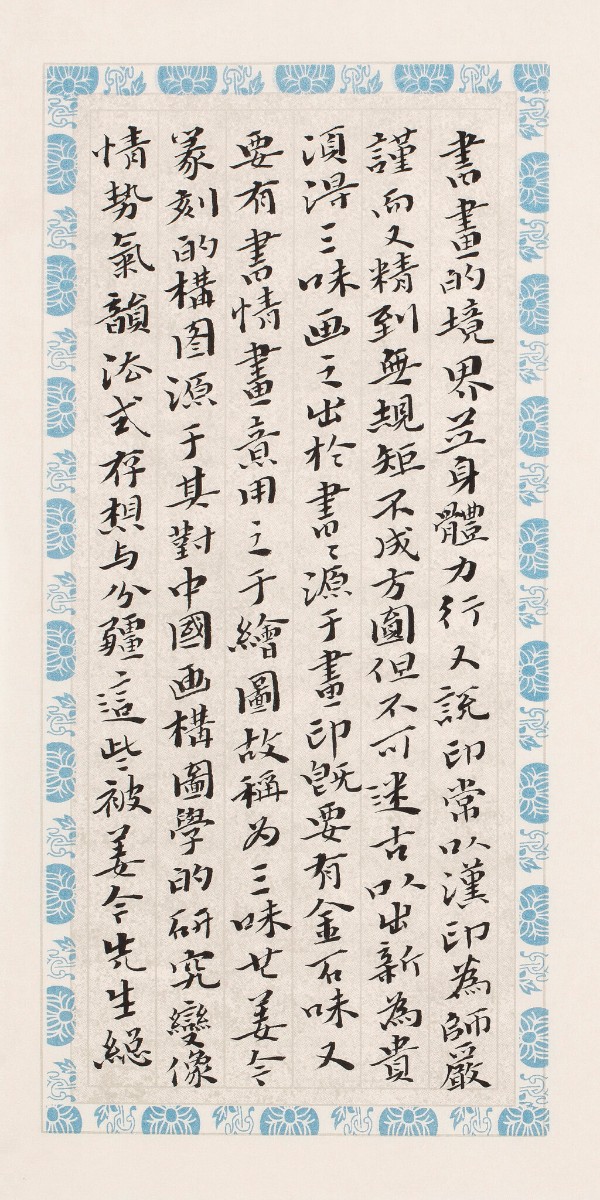 書畫的境界並身體力行又說印常以漢印為師嚴
謹而又精到無規矩不成方圓但不可迷古以出新為貴
須得三味画之出於書書源于畫印既要有金石味又
要有書情畫意用之于繪圖故稱為三味也姜今
篆刻的構图源于其對中國画構圖學的研究變像
情势氣韻法式存想与分疆疆這些被姜今先生總